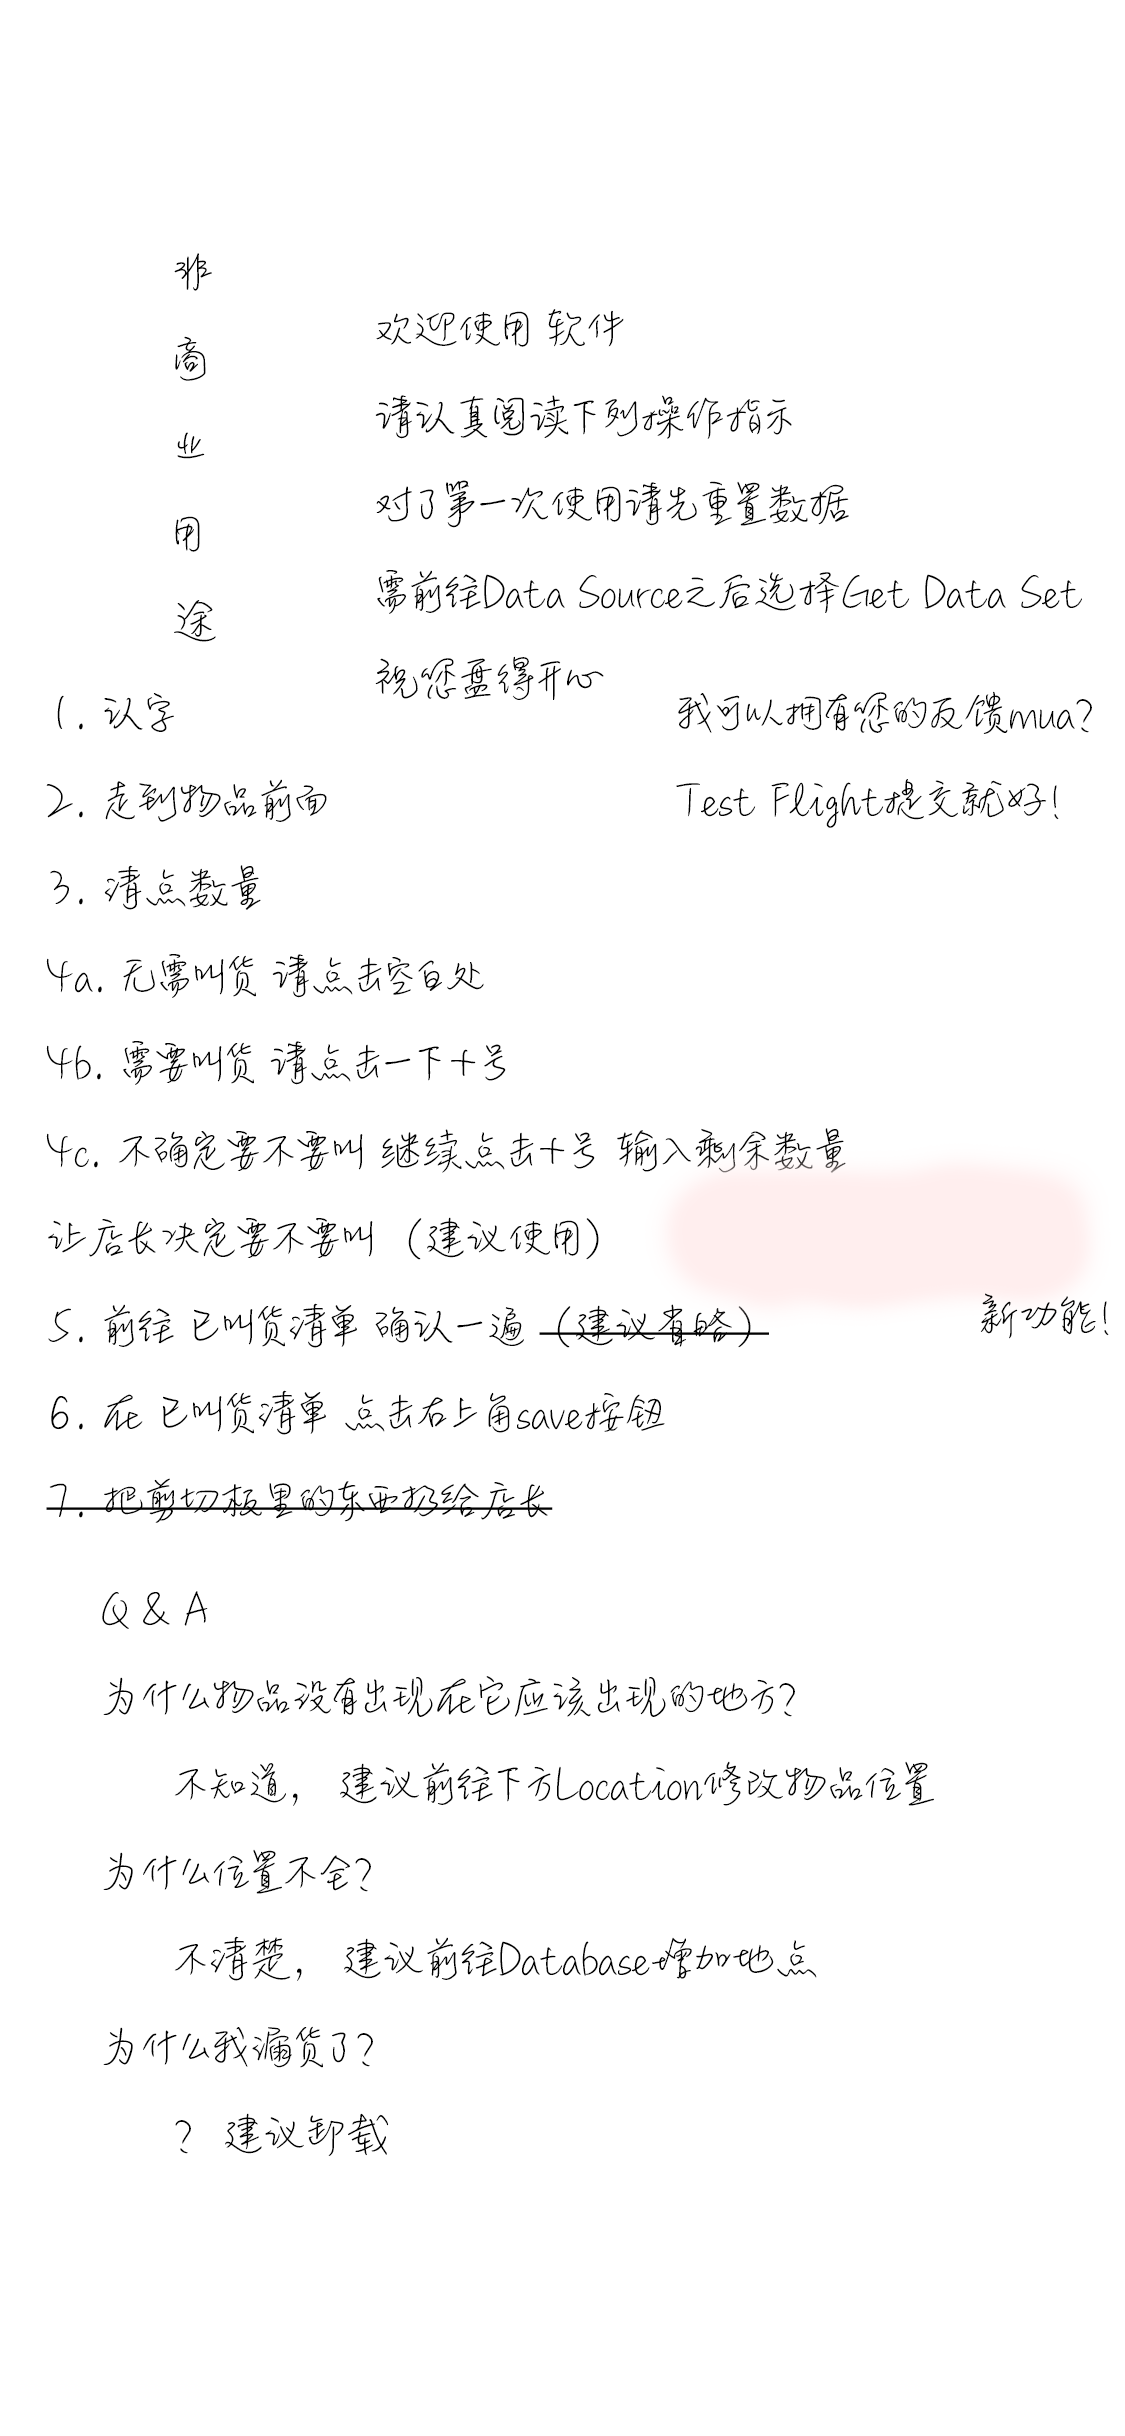 非商业用途
欢迎使用 软件
请认真阅读下列操作指示
对了第一次使用请先重置数据
需前往Data Source之后选择Get Data Set
祝您盘得开心
我可以拥有您的反馈mua?
Test Flight提交就好!
1. 认字
2. 走到物品前面
3. 清点数量
4a. 无需叫货 请点击空白处
4b. 需要叫货 请点击一下十号
4c. 不确定要不要叫 继续点击十号 输入剩余数量
让店长决定要不要叫（建议使用）
5. 前往 已叫货清单 确认一遍（建议省略）
新功能!
6. 在 已叫货清单 点击右上角save按钮
7. 把剪切板里的东西扔给店长
Q & A
为什么物品没有出现在它应该出现的地方?
不知道， 建议前往下方Location修改物品位置
为什么位置不全?
不清楚， 建议前往Database增加地点
为什么我漏货了?
? 建议卸载